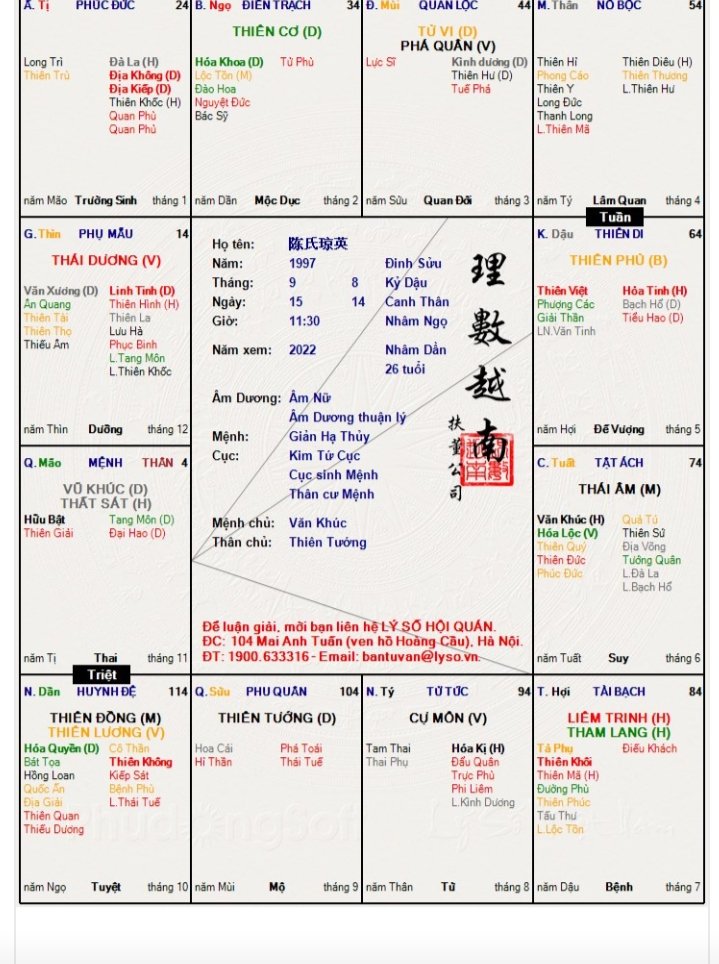 Ấ. Tị PHÚC ĐỨC 24
Long Trì Đà La (H)
Thiên Trù Địa Không (D)
Địa Kiếp (D)
Thiên Khốc (H)
Quan Phủ
Quan Phù
năm Mão Trường Sinh tháng 1
B. Ngọ ĐIỀN TRẠCH 34
THIÊN CƠ (D)
Hóa Khoa (D) Tử Phù
Lộc Tồn (M)
Đào Hoa
Nguyệt Đức
Bác Sỹ
năm Dần Mộc Dục tháng 2
Đ. Mùi QUAN LỘC 44
TỬ VI (D)
PHÁ QUÂN (V)
Lực Sĩ Kình dương (D)
Thiên Hư (D)
Tuế Phá
năm Sửu Quan Đới tháng 3
M. Thân NÔ BỘC 54
Thiên Hỉ Thiên Diêu (H)
Phong Cáo Thiên Thương
Thiên Y L.Thiên Hư
Long Đức
Thanh Long
L.Thiên Mã
năm Tý Lâm Quan tháng 4
Tuần
G. Thìn PHỤ MẪU 14
THÁI DƯƠNG (V)
Văn Xương (D) Linh Tinh (D)
Ân Quang Thiên Hình (H)
Thiên Tài Thiên La
Thiên Thọ Lưu Hà
Thiếu Âm Phục Binh
L.Tang Môn
L.Thiên Khốc
năm Thìn Dưỡng tháng 12
Họ tên: 陈氏琼英
Năm: 1997 Đinh Sửu
Tháng: 9 8 Kỷ Dậu
Ngày: 15 14 Canh Thân
Giờ: 11:30 Nhâm Ngọ
Năm xem: 2022 Nhâm Dần
26 tuổi
Âm Dương: Âm Nữ
Âm Dương thuận lý
Mệnh: Giản Hạ Thủy
Cục: Kim Tứ Cục
Cục sinh Mệnh
Thân cư Mệnh
Mệnh chủ: Văn Khúc
Thân chủ: Thiên Tướng
理數越南
扶董公司
Để luận giải, mời bạn liên hệ LÝ SỐ HỘI QUÁN.
ĐC: 104 Mai Anh Tuấn (ven hồ Hoàng Cầu), Hà Nội.
ĐT: 1900.633316 - Email: bantuvan@lyso.vn.
K. Dậu THIÊN DI 64
THIÊN PHỦ (B)
Thiên Việt Hỏa Tinh (H)
Phượng Các Bạch Hổ (D)
Giải Thần Tiểu Hao (D)
LN.Văn Tinh
năm Hợi Đế Vượng tháng 5
Q. Mão MỆNH THÂN 4
VŨ KHÚC (D)
THẤT SÁT (H)
Hữu Bật Tang Môn (D)
Thiên Giải Đại Hao (D)
năm Tị Thai tháng 11
Triệt
C. Tuất TẬT ÁCH 74
THÁI ÂM (M)
Văn Khúc (H) Quả Tú
Hóa Lộc (V) Thiên Sứ
Thiên Quý Địa Võng
Thiên Đức Tướng Quân
Phúc Đức L.Đà La
L.Bạch Hổ
năm Tuất Suy tháng 6
N. Dần HUYNH ĐỆ 114
THIÊN ĐỒNG (M)
THIÊN LƯƠNG (V)
Hóa Quyền (D) Cô Thần
Bát Tọa Thiên Không
Hồng Loan Kiếp Sát
Quốc Ấn Bệnh Phù
Địa Giải L.Thái Tuế
Thiên Quan
Thiếu Dương
năm Ngọ Tuyệt tháng 10
Q. Sửu PHU QUÂN 104
THIÊN TƯỚNG (D)
Hoa Cái Phá Toái
Hỉ Thần Thái Tuế
năm Mùi Mộ tháng 9
N. Tý TỬ TỨC 94
CỰ MÔN (V)
Tam Thai Hóa Kị (H)
Thai Phụ Đẩu Quân
Trực Phù
Phi Liêm
L.Kình Dương
năm Thân Tử tháng 8
T. Hợi TÀI BẠCH 84
LIÊM TRINH (H)
THAM LANG (H)
Tả Phụ Điếu Khách
Thiên Khôi
Thiên Mã (H)
Đường Phù
Thiên Phúc
Tấu Thư
L.Lộc Tồn
năm Dậu Bệnh tháng 7